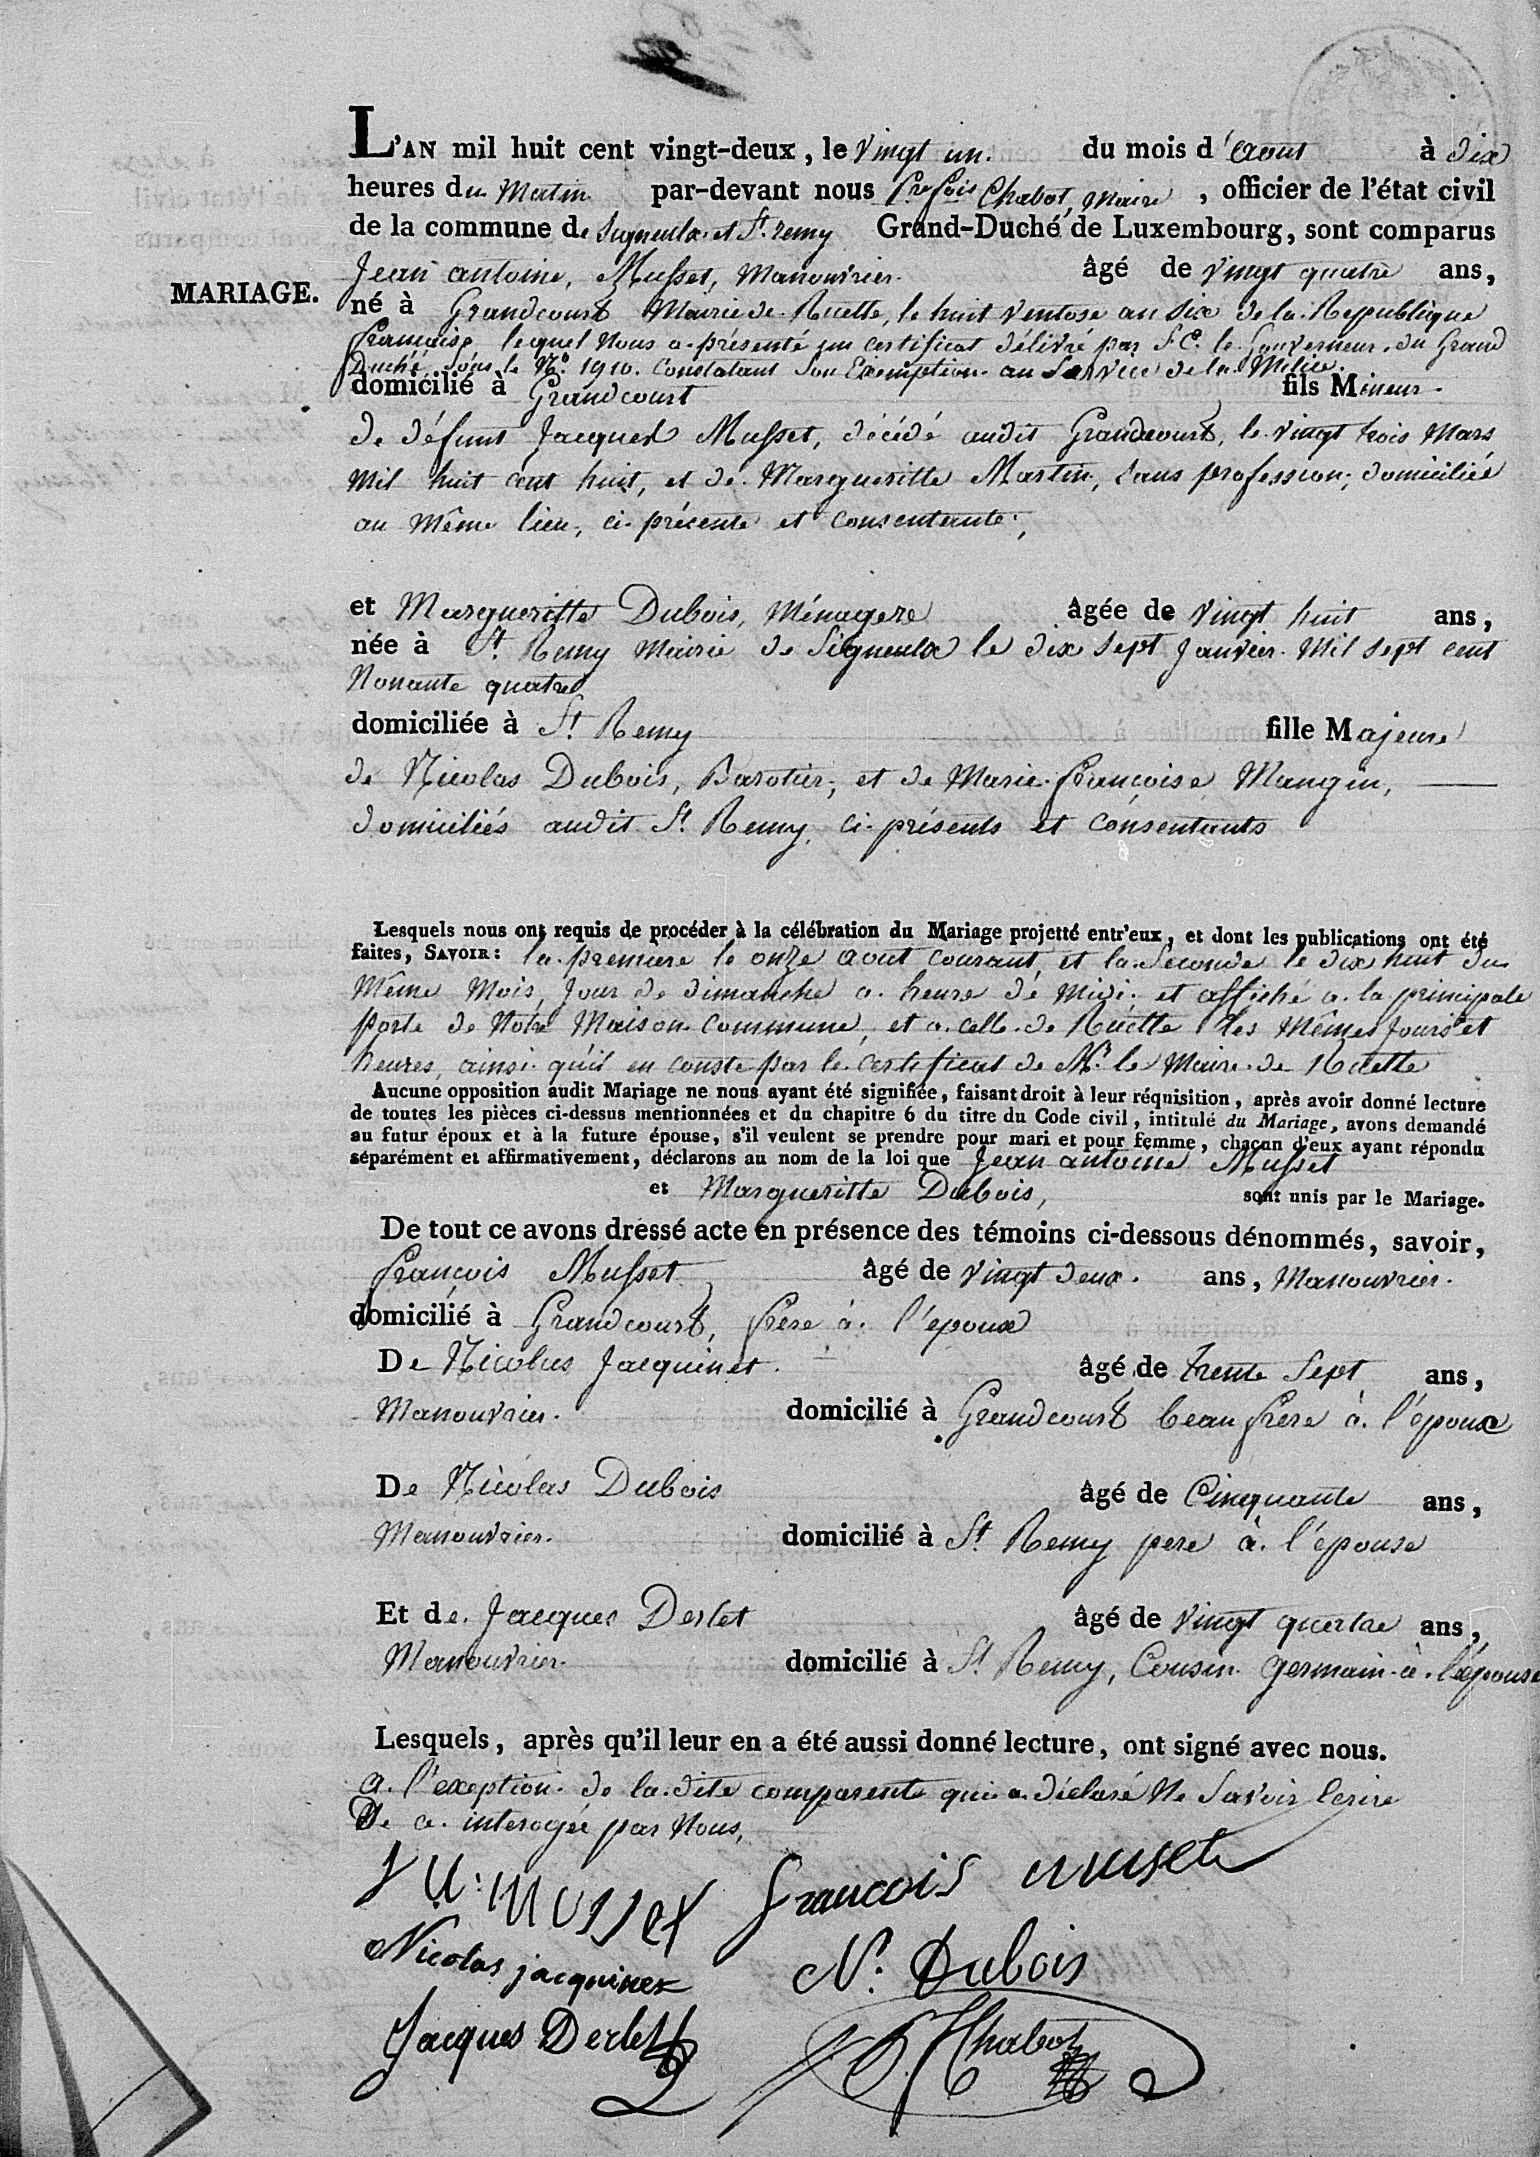 L'AN mil huit cent vingt-deux, le vingt un. du mois d'aout à dix
heures du Matin par-devant nous Pre fois Chabot, Maire, officier de l'état civil
de la commune de Signeulx et St. remy Grand-Duché de Luxembourg, sont comparus
Jean antoine, Musset, Manouvrier. âgé de vingt quatre ans,
MARIAGE.
né à Grandcourt Mairie de Ruette, le huit Ventose an six de la Republique
française lequel Nous a présenté un certificat délivré par S. E. le Gouverneur du Grand
Duché sous le No. 1910. Constatant Son Exemption au Service de la Milice.
domicilié à Grandcourt fils Mineur.
de défunt Jacques Musset, décédé audit Grandcourt, le vingt trois Mars
Mil huit cent huit, et de Margueritte Martin, sans profession, domiciliée
au même lieu, ci-présente et consentante,
et Margueritte Dubois, Ménagere âgée de vingt huit ans,
née à St Remy Mairie de Signeulx le dix sept Janvier Mil sept cent
Nonante quatre
domiciliée à St Remy fille Majeure
de Nicolas Dubois, Barotier, et de Marie françoise Mangin,
domiciliés audit St Remy, ci-présents et consentants
Lesquels nous ont requis de procéder à la célébration du Mariage projetté entr'eux, et dont les publications ont été
faites, SAVOIR: la premiere le onze aout courant, et la Seconde le dix huit du
Même Mois, Jour de dimanche a heure de Midi et affiché a la principale
porte de Notre Maison Commune, et a celle de Ruette les Mêmes Jours et
heures, ainsi qu'il en conste par le certificat de Mr le Maire de Ruette
Aucune opposition audit Mariage ne nous ayant été signifiée, faisant droit à leur réquisition, après avoir donné lecture
de toutes les pièces ci-dessus mentionnées et du chapitre 6 du titre du Code civil, intitulé du Mariage, avons demandé
au futur époux et à la future épouse, s'il veulent se prendre pour mari et pour femme, chacun d'eux ayant répondu
séparément et affirmativement, déclarons au nom de la loi que Jean antoine Musset
et Margueritte Dubois, sont unis par le Mariage.
De tout ce avons dressé acte en présence des témoins ci-dessous dénommés, savoir,
françois Musset âgé de vingt deux. ans, Manouvrier.
domicilié à Grandcourt, frere à l'epoux
De Nicolas Jacquinet. âgé de trente Sept ans,
Manouvrier. domicilié à Grandcourt beau frere à l'époux
De Nicolas Dubois âgé de Cinquante ans,
Manouvrier. domicilié à St Remy pere à l'épouse
Et de Jacques Derlet âgé de vingt quatre ans,
Manouvrier. domicilié à St Remy, Cousin germain à l'épouse
Lesquels, après qu'il leur en a été aussi donné lecture, ont signé avec nous.
a l'exeption de la dite comparente qui a déclaré Ne Savoir lecrire
De ce interogée par Nous,
J A: MUSSET françois musset
Nicolas jacquinet N. Dubois
Jacques Derlet P. f Chabot